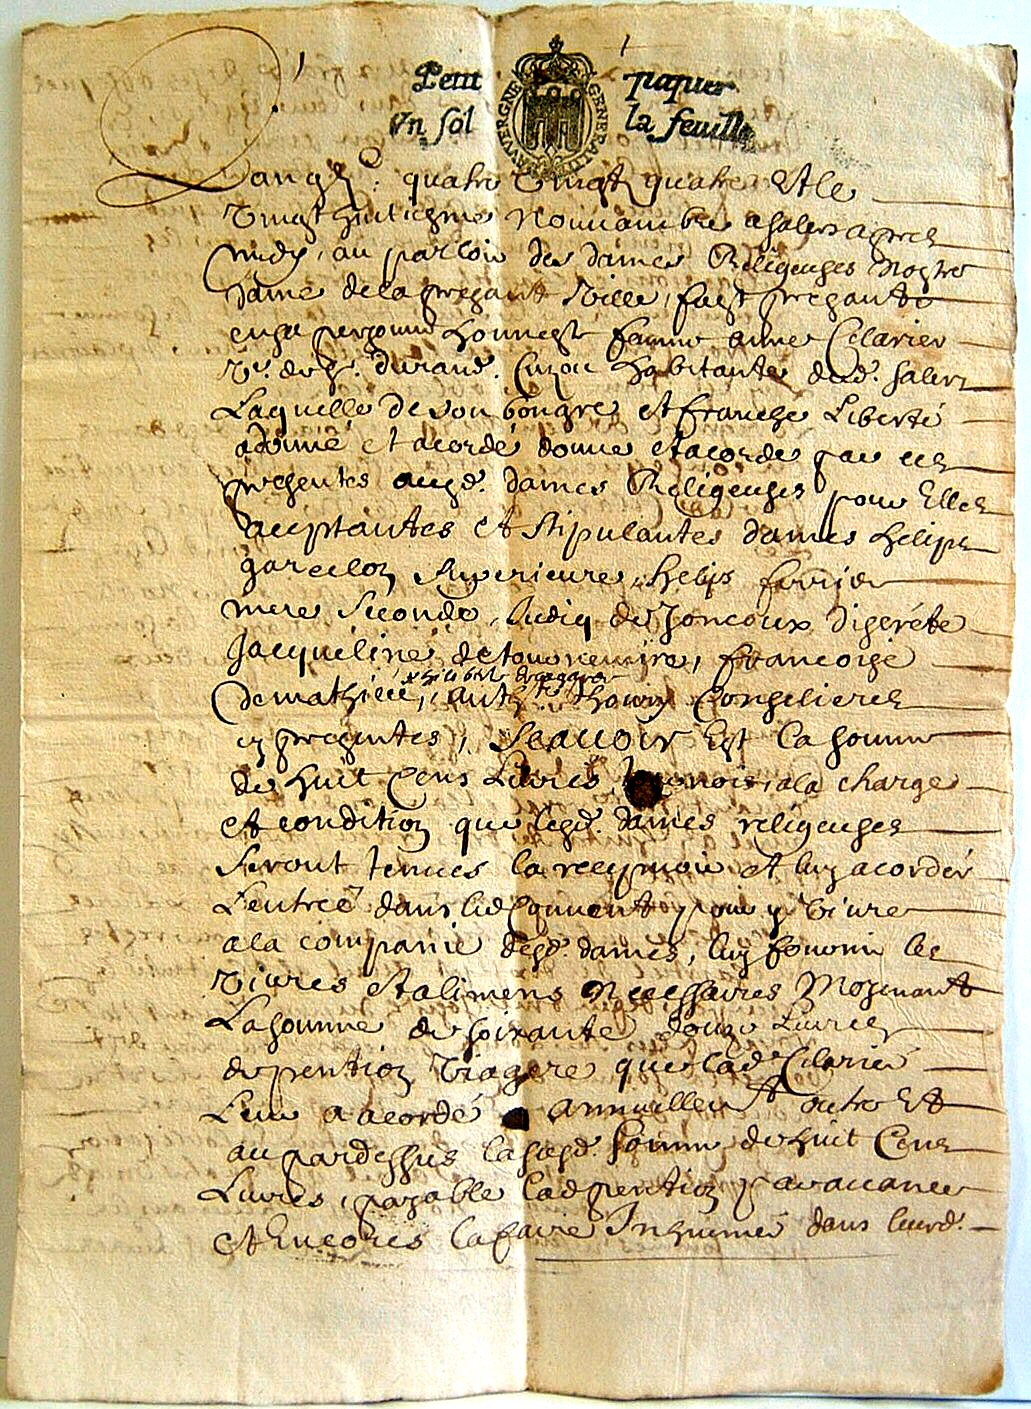 Petit papier
Vn sol la feuille
AUVERGNE GENERALITE
Lan gbjc. quatre vingt quatre et le
vingt huitiesme nouuambre a salers apres
midy, au parloir des dames Religeuzes nostre
dame de la prezant ville, fust prezante
en sa personne honneste famme anne Celarier
vve. de ft. durand. Cuzou habitante dud. salers
Laquelle de son bongre et franche Liberté
a donné et acordé donne et acorde par ces
prezentes ausd. dames Religeuzes pour Elles
aceptantes et stipulantes dames helips
garcelon superieure, helips ferrier
mere seconde, de Joncoux discréte
Jacqueline de tournemire, francoize
de mathieu, Conselieres
ey prezentes, scauoir Est la somme
de huit Cens Livres tournois, a la charge
et condition que lesd. dames religeuzes
seront tenues la recepuoir et luy acorder
L'entrée dans led Conuent pour y viure
a la companie desd. dames, luy fournir les
viures et alimens necessaires moyenant
La somme de soixante douze Liures
de pention viagere que lad. Celarier
Leur a acordé annuellemt outre Et
au pardessus la susd. somme de huit Cens
Liures, payable lad pention par auance
et Encores la faire Inhumer dans leurd.